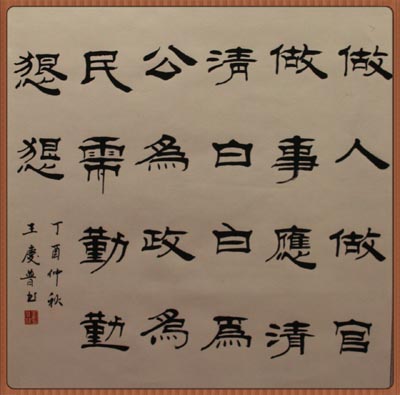 做人做官
做事應清
清白白為
公為政為
民需勤勤
懇懇
丁酉仲秋
王慶普书